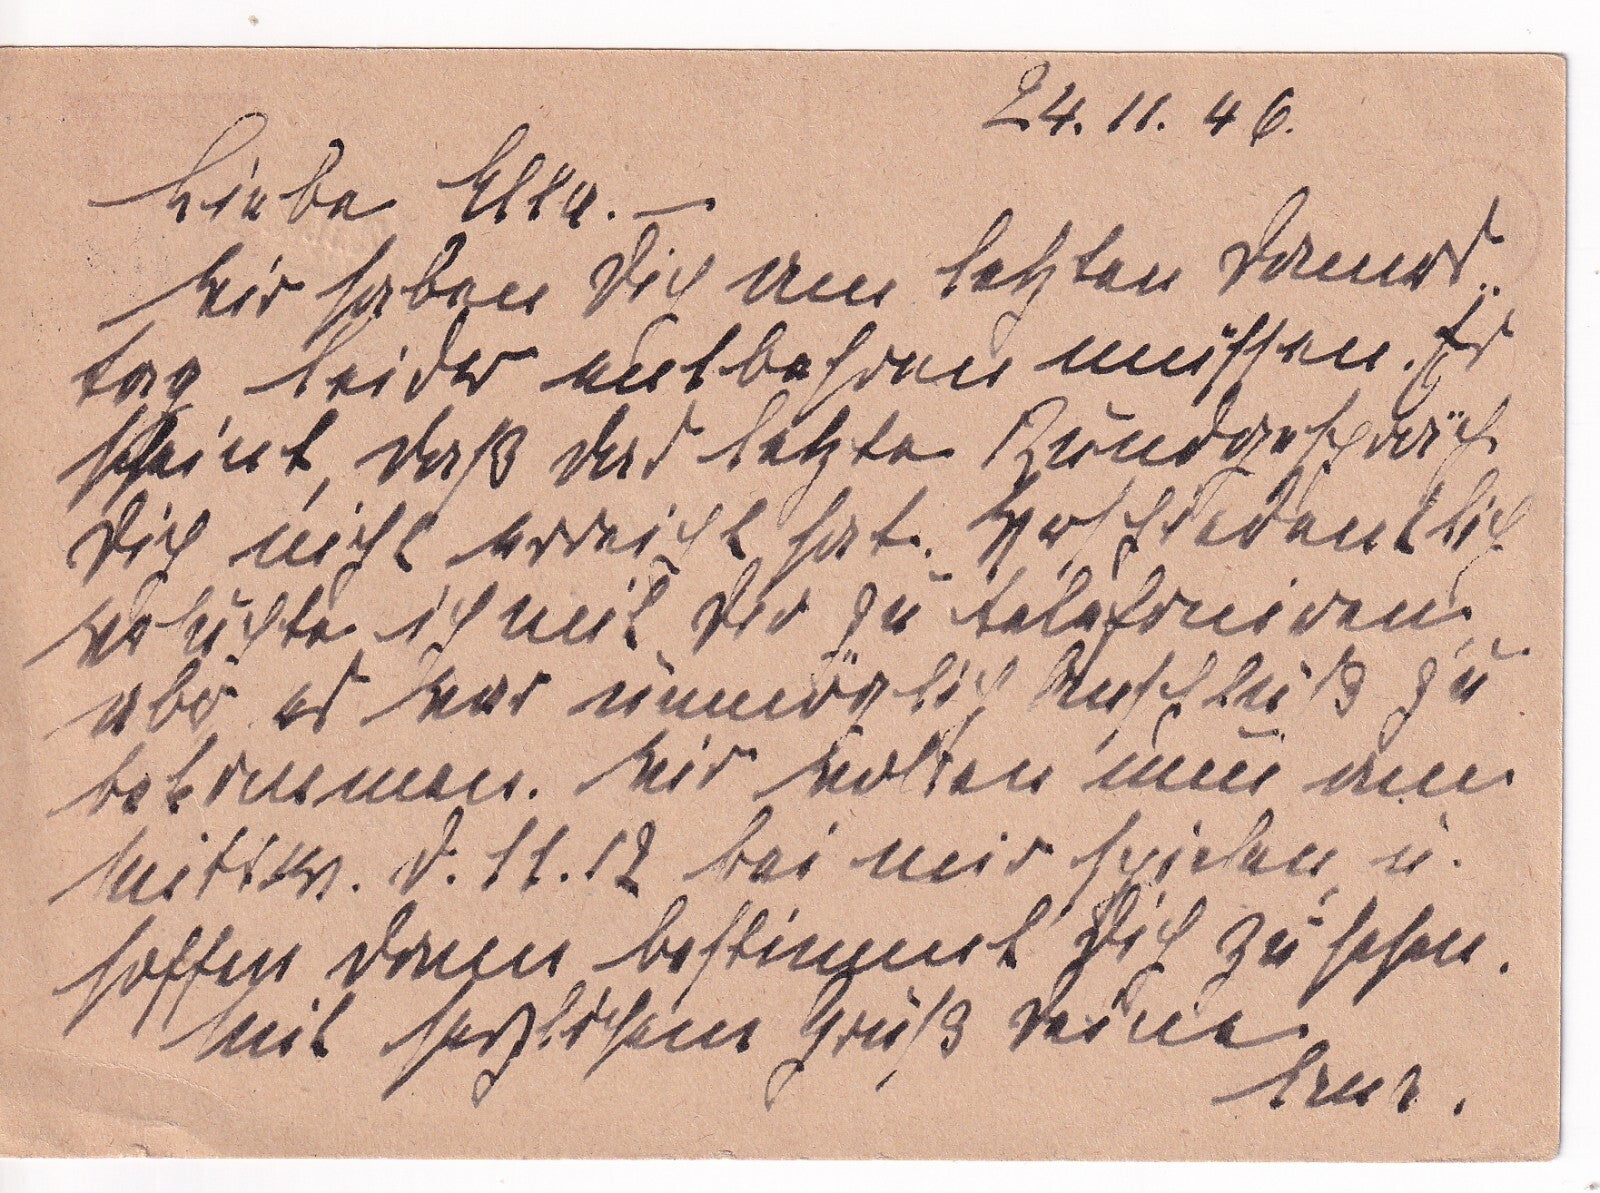 24.11.46.
Liebe Ella. —
Wir haben Dich am letzten Donners-
tag leider entbehren müssen. Es
scheint, daß das letzte Rundgespräch
Dich nicht erreicht hat. Verschiedentlich
versuchte ich mit Dir zu telefonieren,
aber es war unmöglich Anschluß zu
bekommen. Wir wollen nun am
Mittw. d. 11.12 bei mir spielen, u.
hoffen dann bestimmt Dich zu sehen.
Mit herzlichem Gruß Deine